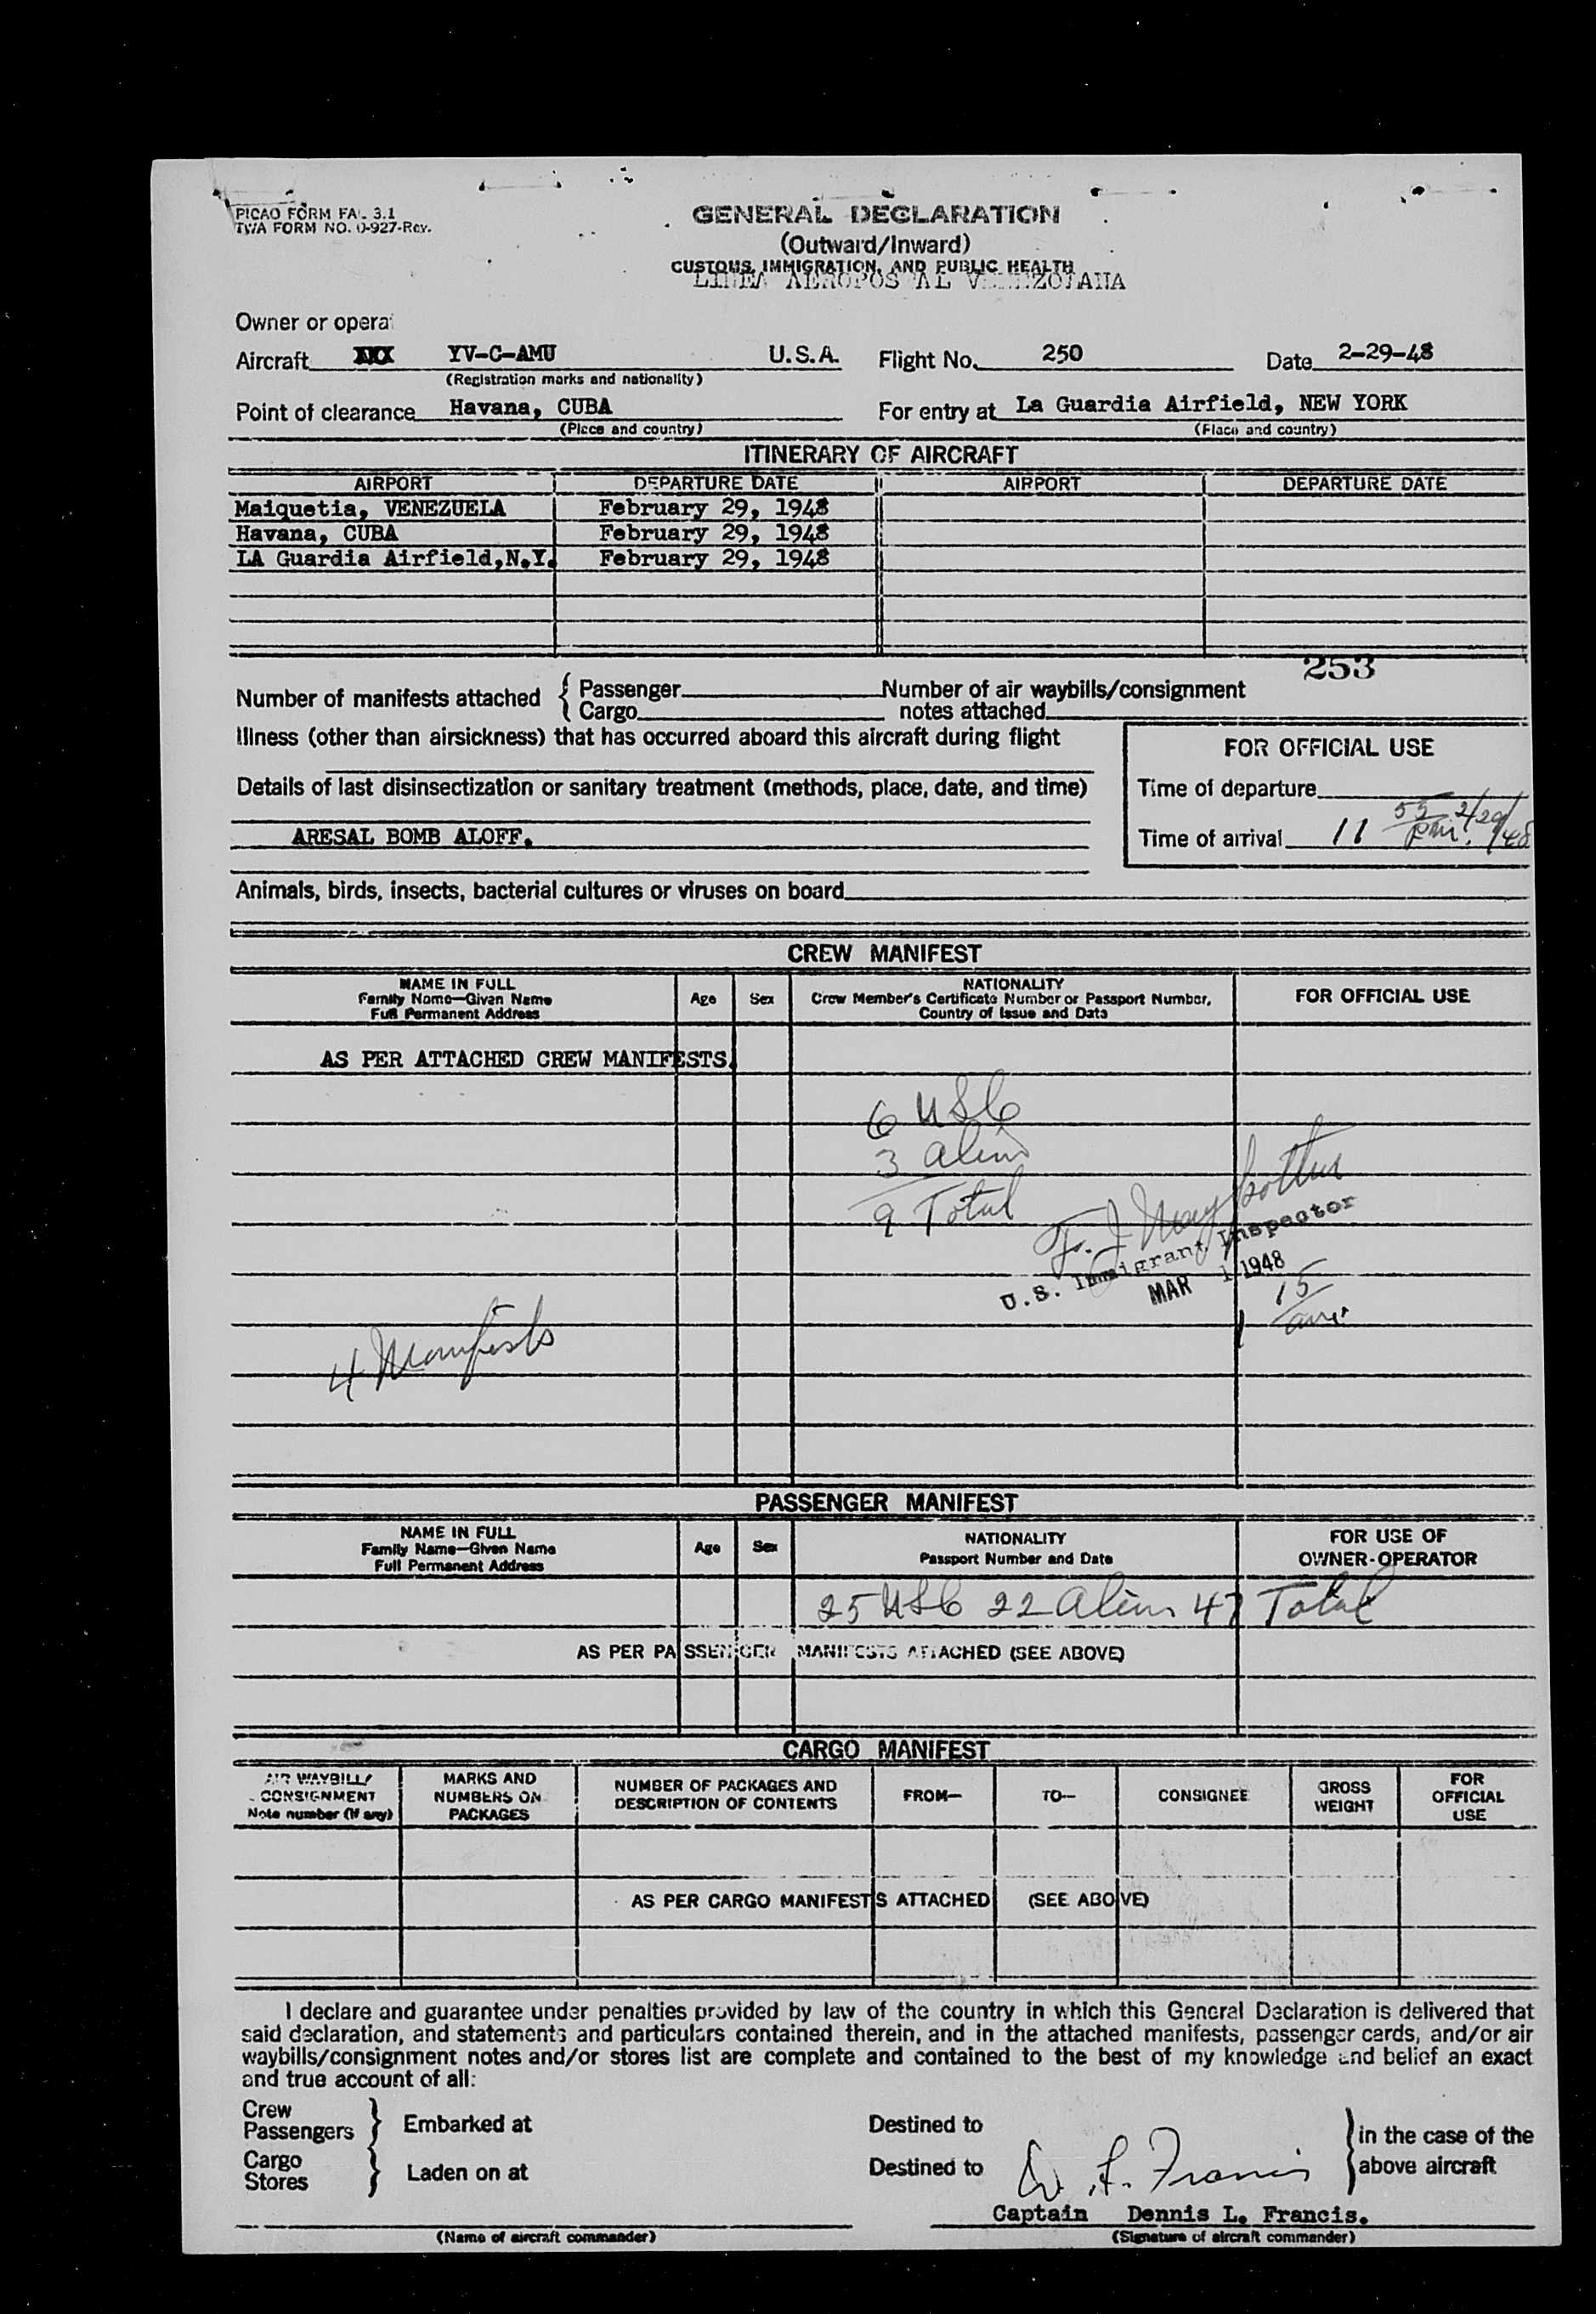 PICAO FORM FAL 3.1
TWA FORM NO. 0-927-Rev.
GENERAL DECLARATION
(Outward/Inward)
CUSTOMS, IMMIGRATION, AND PUBLIC HEALTH
LINEA AEROPOSTAL VENEZOLANA
Owner or opera
Aircraft XXX YV-C-AMU U.S.A. Flight No. 250 Date 2-29-48
(Registration marks and nationality)
Point of clearance Havana, CUBA For entry at La Guardia Airfield, NEW YORK
(Place and country) (Place and country)
ITINERARY OF AIRCRAFT
AIRPORT DEPARTURE DATE AIRPORT DEPARTURE DATE
Maiquetia, VENEZUELA February 29, 1948
Havana, CUBA February 29, 1948
LA Guardia Airfield,N.Y. February 29, 1948
253
Number of manifests attached { Passenger Number of air waybills/consignment
Cargo notes attached
Illness (other than airsickness) that has occurred aboard this aircraft during flight
FOR OFFICIAL USE
Details of last disinsectization or sanitary treatment (methods, place, date, and time)
Time of departure
ARESAL BOMB ALOFF.
Time of arrival 11 55 pm. 2/29/48
Animals, birds, insects, bacterial cultures or viruses on board
CREW MANIFEST
NAME IN FULL
Family Name—Given Name
Full Permanent Address
Age Sex
NATIONALITY
Crew Member's Certificate Number or Passport Number,
Country of Issue and Data
FOR OFFICIAL USE
AS PER ATTACHED CREW MANIFESTS.
6 USC
3 alien
9 Total
F. J.
U.S. Immigrant Inspector
MAR 1 1948
1 15 am.
4 Manifests
PASSENGER MANIFEST
NAME IN FULL
Family Name—Given Name
Full Permanent Address
Age Sex
NATIONALITY
Passport Number and Date
FOR USE OF
OWNER-OPERATOR
25 USC 22 Alien 47 Total
AS PER PASSENGER MANIFESTS ATTACHED (SEE ABOVE)
CARGO MANIFEST
AIR WAYBILL/
CONSIGNMENT
Note number (if any)
MARKS AND
NUMBERS ON
PACKAGES
NUMBER OF PACKAGES AND
DESCRIPTION OF CONTENTS
FROM—
TO—
CONSIGNEE
GROSS
WEIGHT
FOR
OFFICIAL
USE
AS PER CARGO MANIFESTS ATTACHED (SEE ABOVE)
I declare and guarantee under penalties provided by law of the country in which this General Declaration is delivered that
said declaration, and statements and particulars contained therein, and in the attached manifests, passenger cards, and/or air
waybills/consignment notes and/or stores list are complete and contained to the best of my knowledge and belief an exact
and true account of all:
Crew
Passengers } Embarked at Destined to
Cargo
Stores } Laden on at Destined to
} in the case of the
above aircraft
D. L. Francis
Captain Dennis L. Francis.
(Name of aircraft commander) (Signature of aircraft commander)